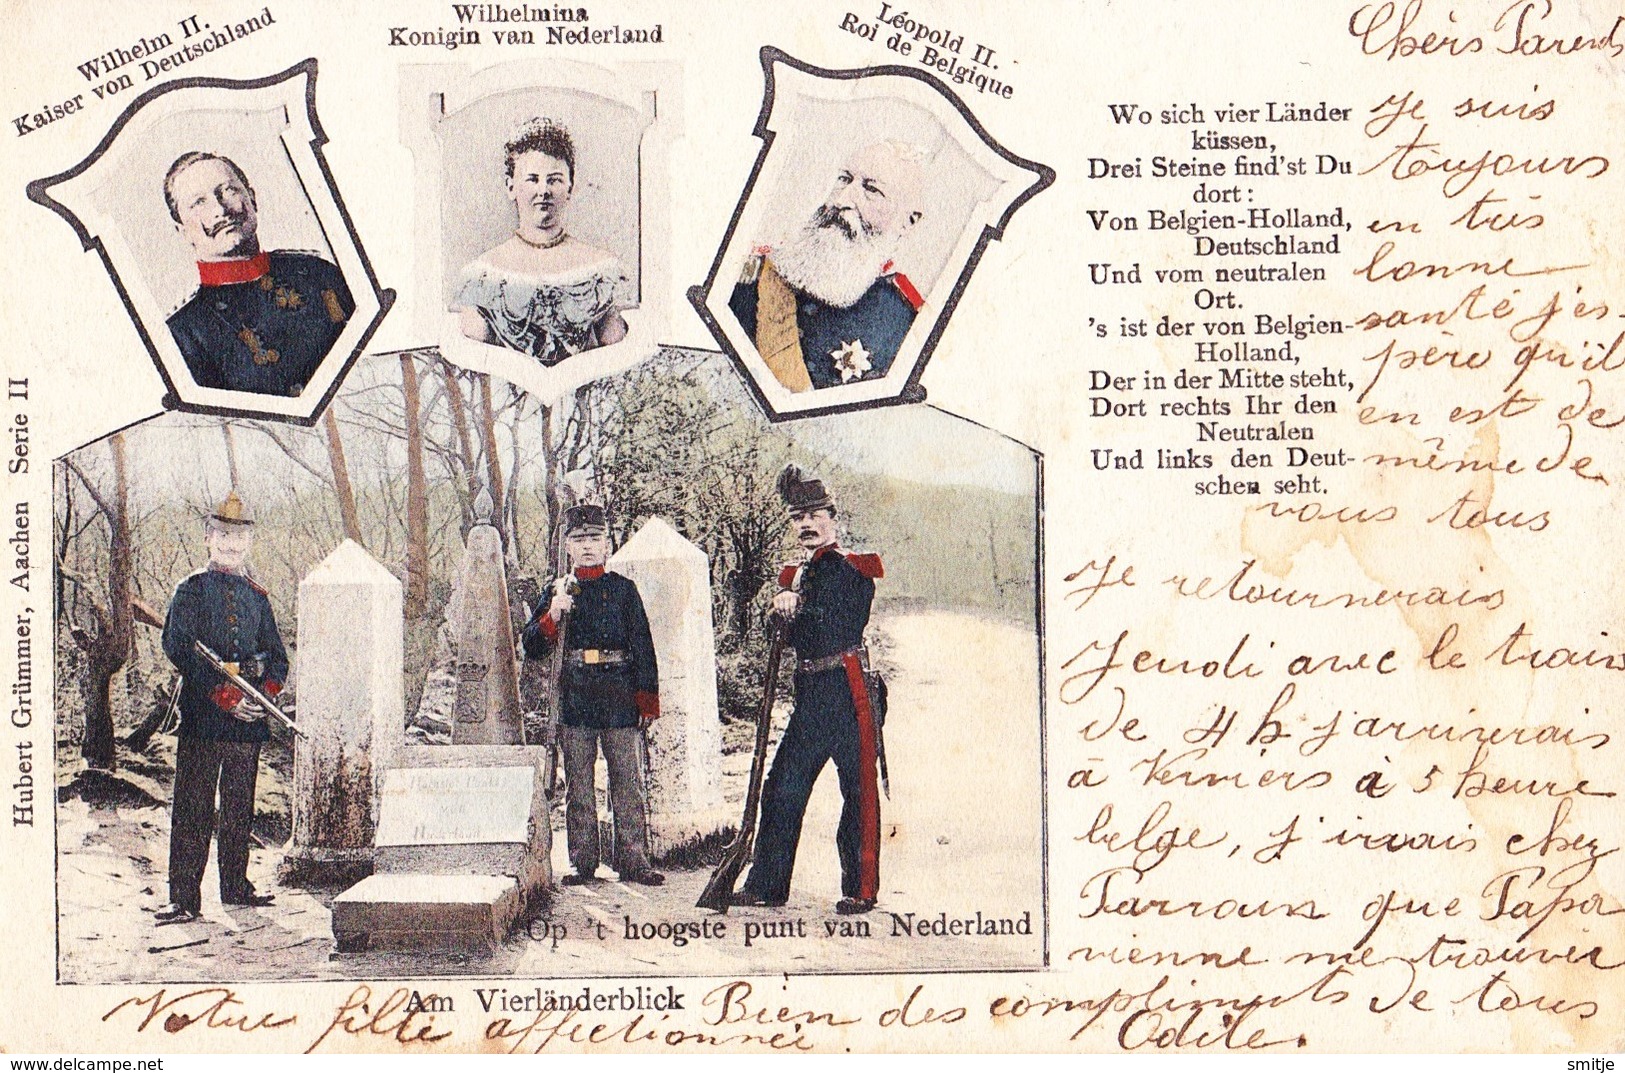 Wilhelm II.
Kaiser von Deutschland
Wilhelmina
Konigin van Nederland
Léopold II.
Roi de Belgique
Wo sich vier Länder
küssen,
Drei Steine find'st Du
dort:
Von Belgien-Holland,
Deutschland
Und vom neutralen
Ort.
's ist der von Belgien-
Holland,
Der in der Mitte steht,
Dort rechts Ihr den
Neutralen
Und links den Deut-
schen seht.
Chèrs Parents
Je suis
toujours
en très
bonne
santé j'es-
père qu'il
en est de
même de
vous tous
Je retournerais
Jeudi avec le train
de 4 h j'arriverais
à Verviers à 5 heure
belge, j'irais chez
Parroux que Papa
vienne me trouver
Bien des compliments de tous
Votre fille affectionnée.
Odile.
Hubert Grümmer, Aachen Serie II
Op 't hoogste punt van Nederland
Am Vierländerblick
delcampe.net
smitje